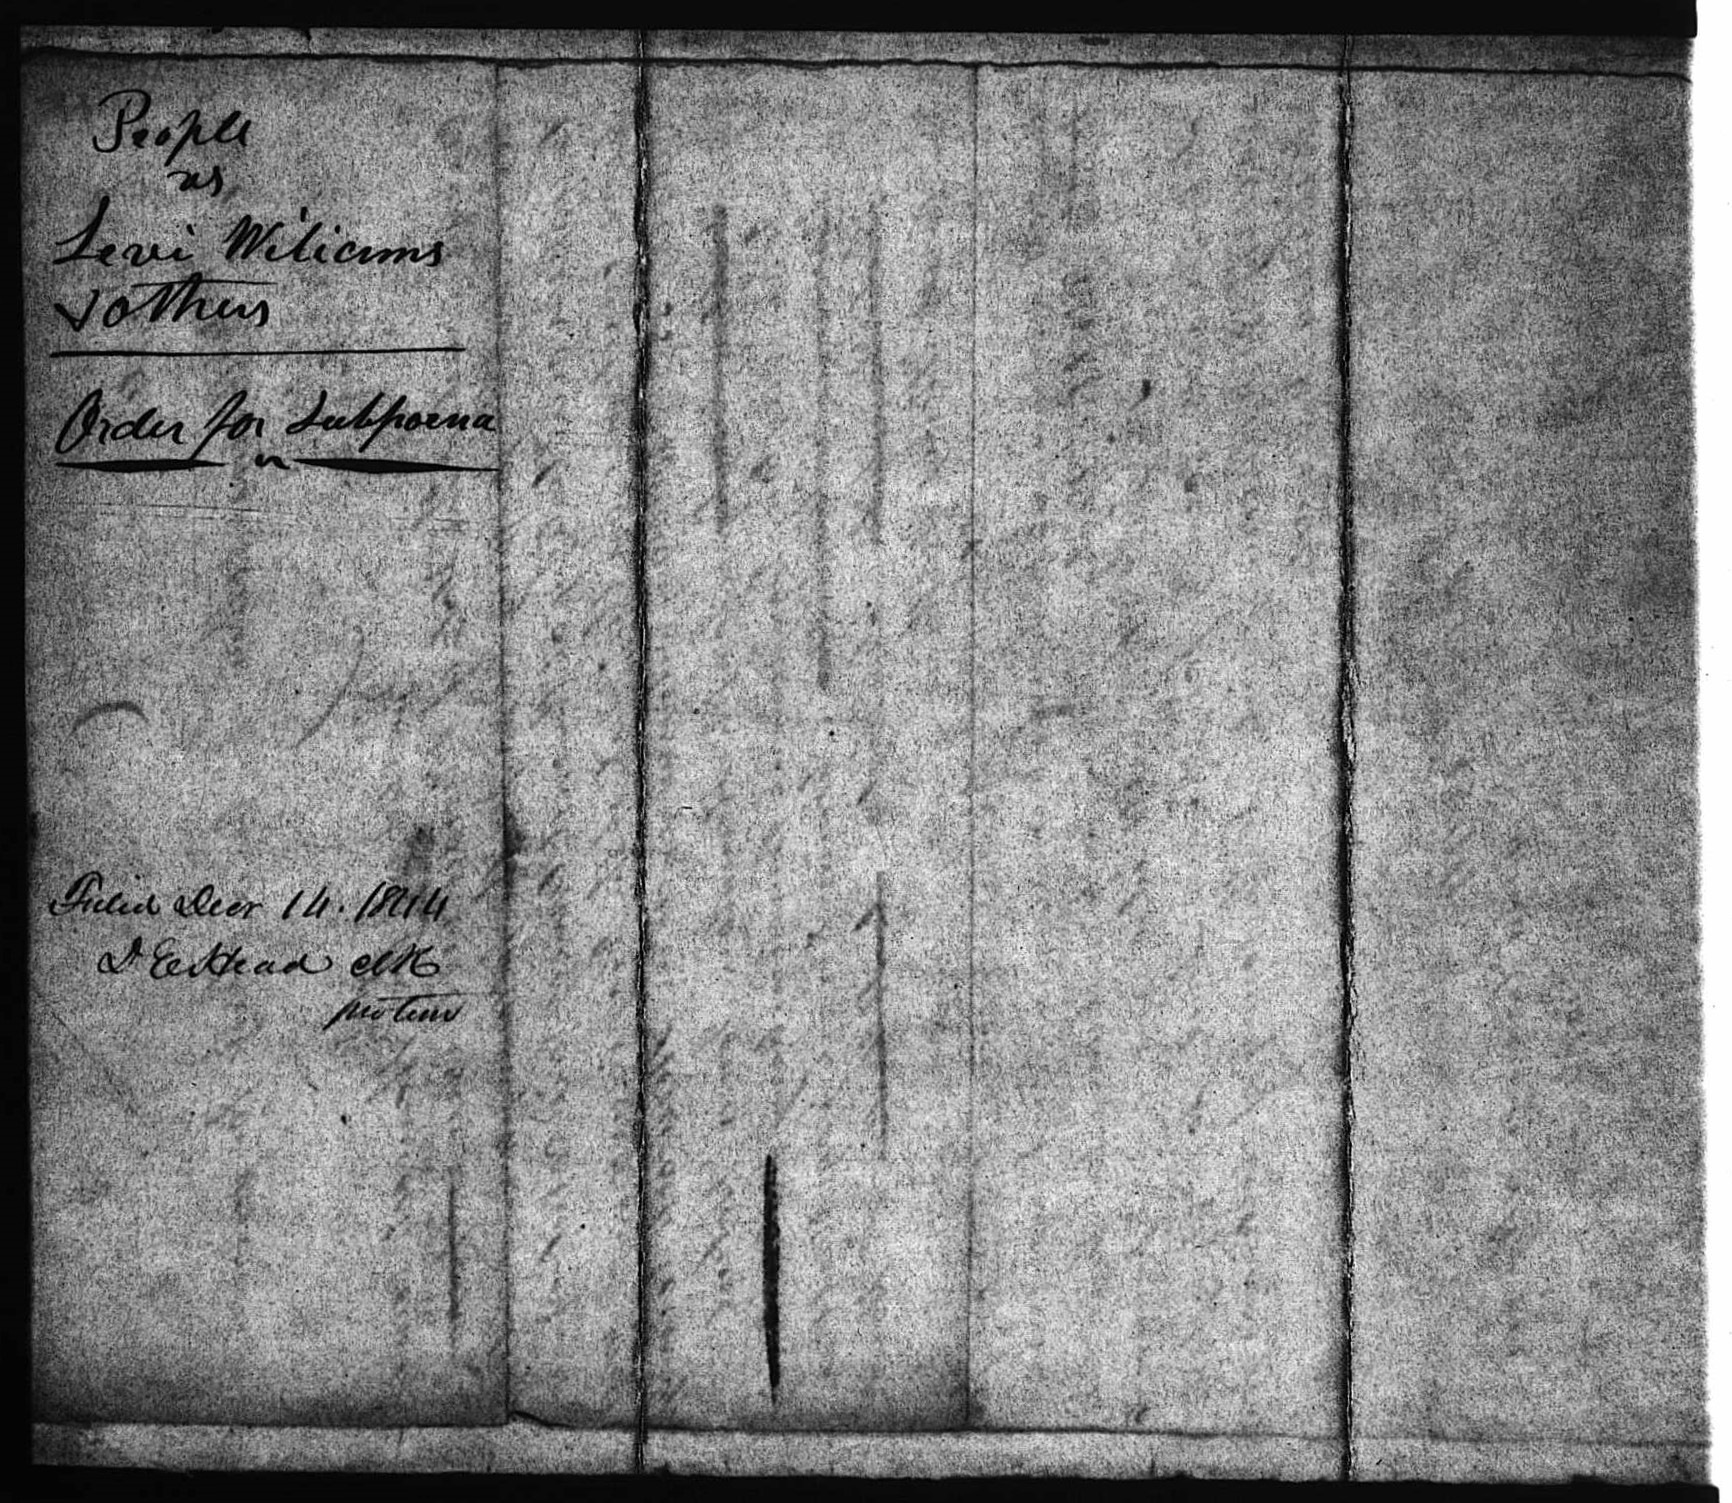 People
vs
Levi Wiliams
& others
Order for Subpoena
Filed Decr 14. 1844
D E Head clk
protem